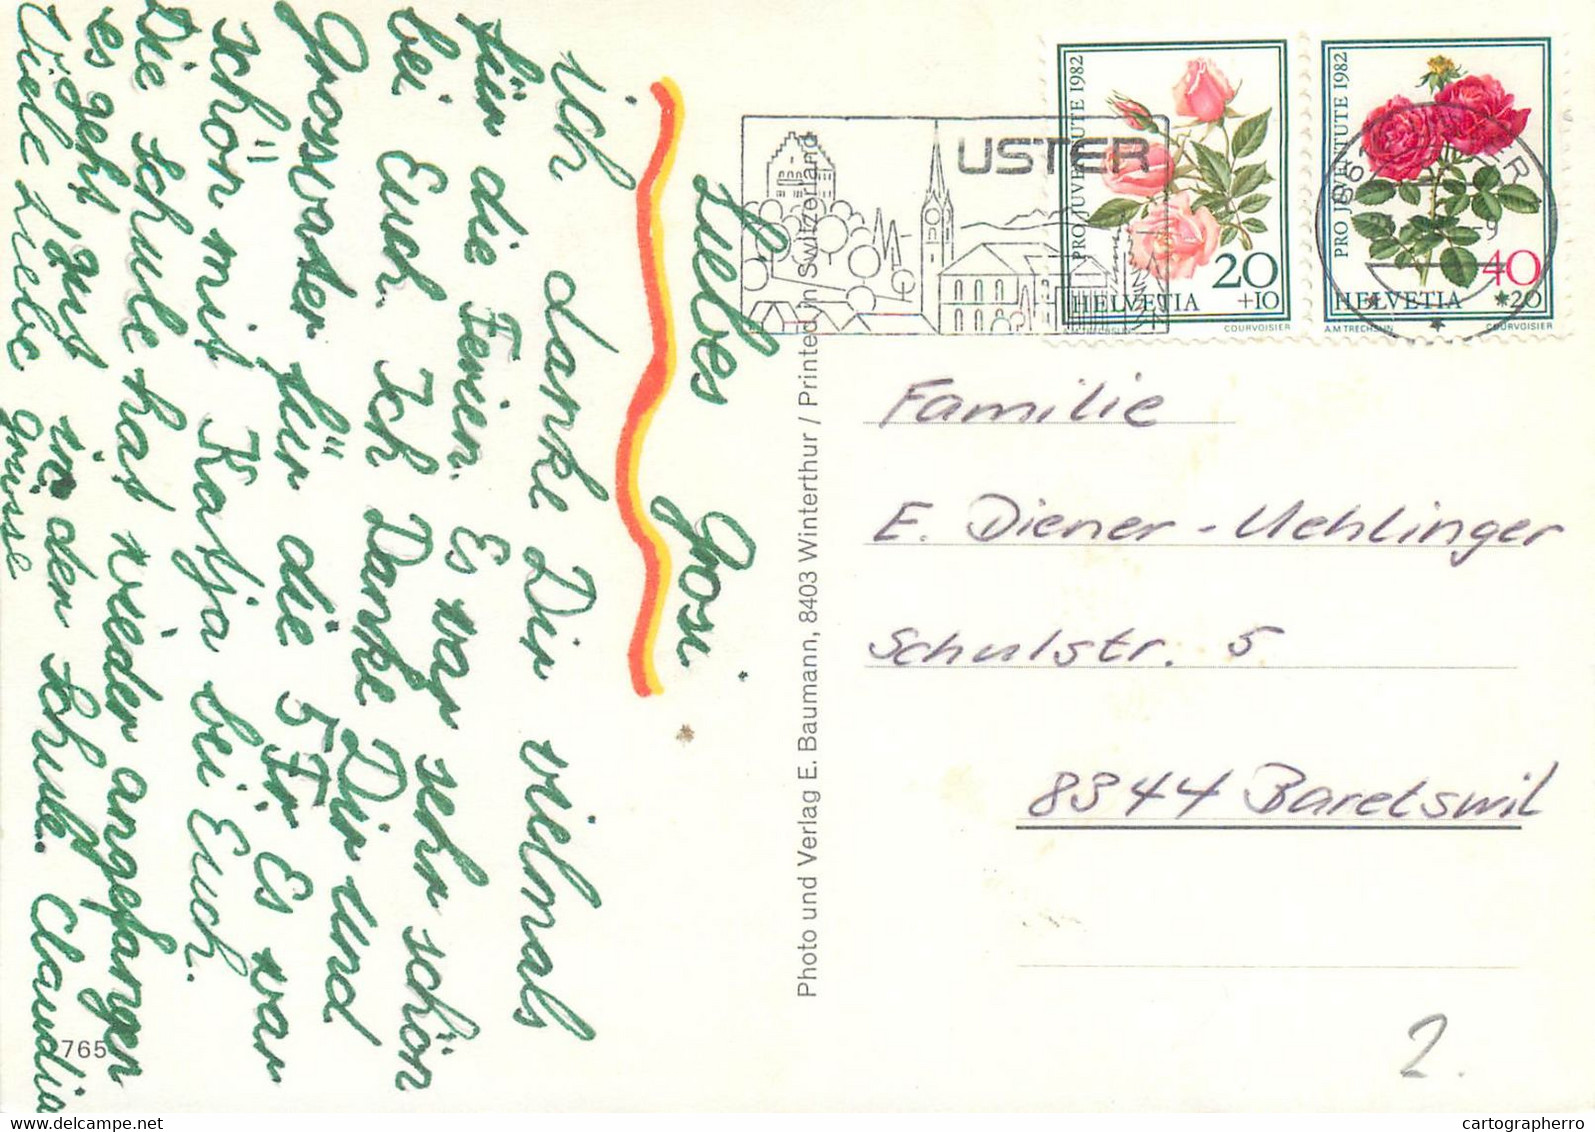 Liebes Gosi
ich danke Dir vielmals
für die Ferien. Es war sehr schön
bei Euch. Ich Danke Dir und
Grosvater für die 5 Fr. Es war
schön mit Katja bei Euch.
Die schule hat wieder angefangen
es geht gut in den schule.
Viele Liebe grüsse Claudia
765
Photo und Verlag E. Baumann, 8403 Winterthur / Printed in Switzerland
USTER
PRO JUVENTUTE 1982
20
+10
HELVETIA
COURVOISIER
PRO JUVENTUTE 1982
40
+20
HELVETIA
A.M. TRECHSLIN
COURVOISIER
Familie
E. Diener-Uehlinger
Schulstr. 5
8344 Baretswil
2.
https://www.delcampe.net
cartographerro